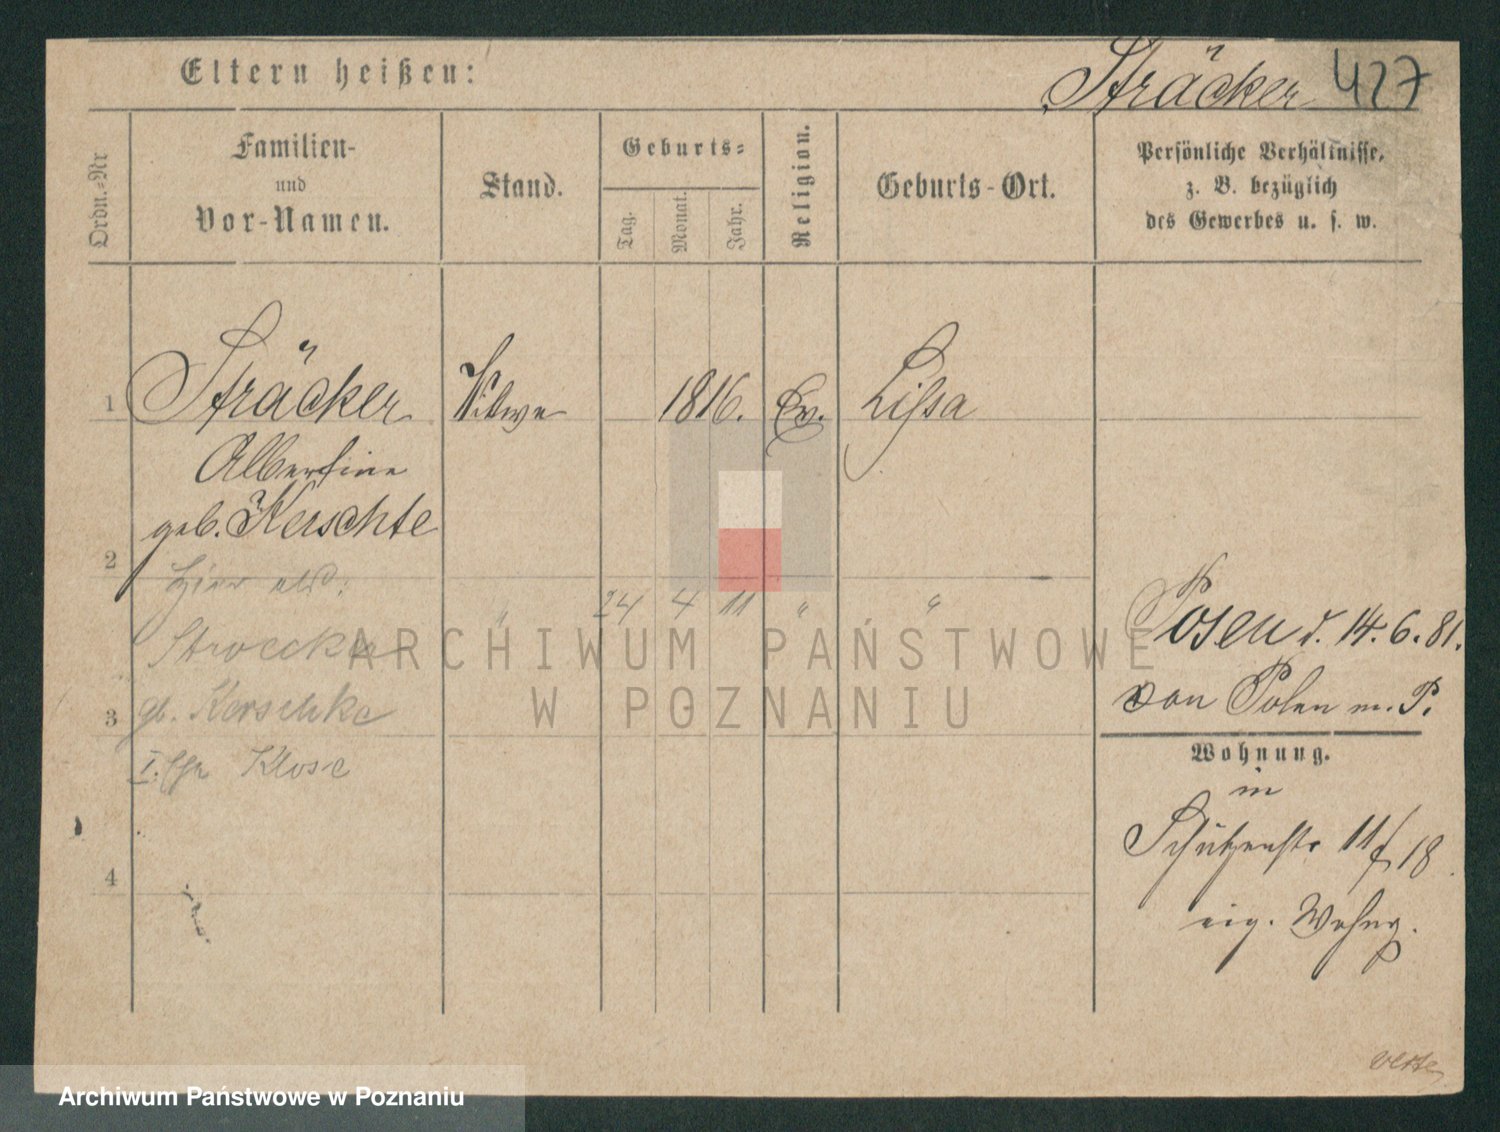 Eltern heißen:
Sträcker 427
Ordn.-Nr
Familien-
und
Vor-Namen.
Stand.
Geburts-
Tag.
Monat.
Jahr.
Religion.
Geburts-Ort.
Persönliche Verhältnisse,
z. B. bezüglich
des Gewerbes u. s. w.
1 Sträcker Witwe 1816. Ev. Lissa
Albertine
geb. Kerschte
2
Hier als:
" 24 4 11 " "
Stroecker
gb. Kerschke
3
I. Klose
4
Posen d. 14. 6. 81.
von Polen m. P.
Wohnung.
in
Schützenstr 11/18
eig. Wohng.
ARCHIWUM PAŃSTWOWE
W POZNANIU
Archiwum Państwowe w Poznaniu